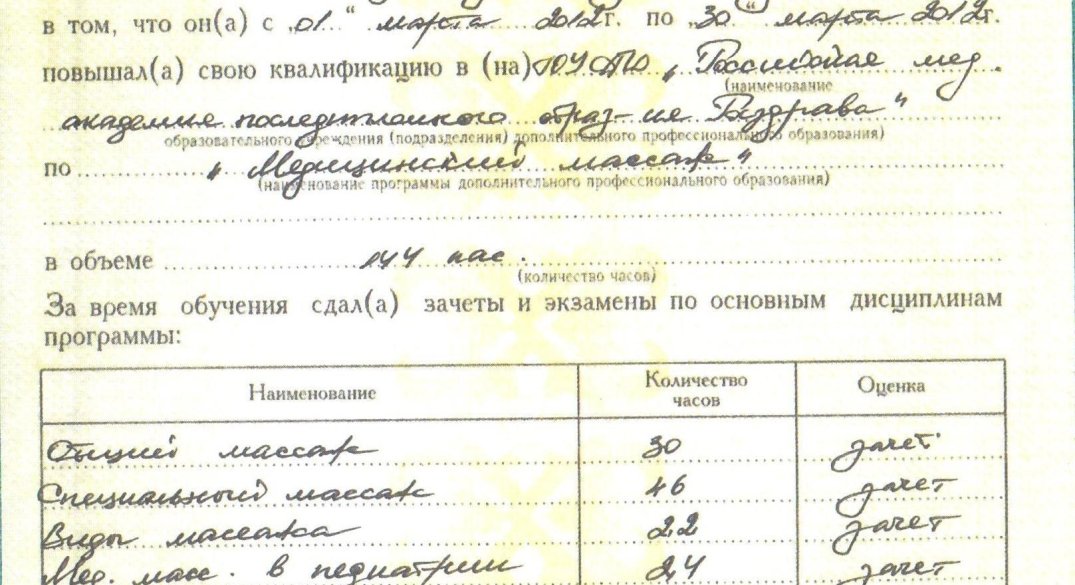 в том, что он(а) с „01“ марта 2012г. по „30“ марта 2012г.
повышал(а) свою квалификацию в (на) ГОУ ДПО „Российская мед.
(наименование
академия последипломного образ-ия Росздрава“
образовательного учреждения (подразделения) дополнительного профессионального образования)
по „Медицинский массаж“
(наименование программы дополнительного профессионального образования)
в объеме 144 час.
(количество часов)
За время обучения сдал(а) зачеты и экзамены по основным дисциплинам
программы:
Наименование Количество часов Оценка
Общий массаж 30 зачет
Специальный массаж 46 зачет
Виды массажа 22 зачет
Мед. масс. в педиатрии 24 зачет